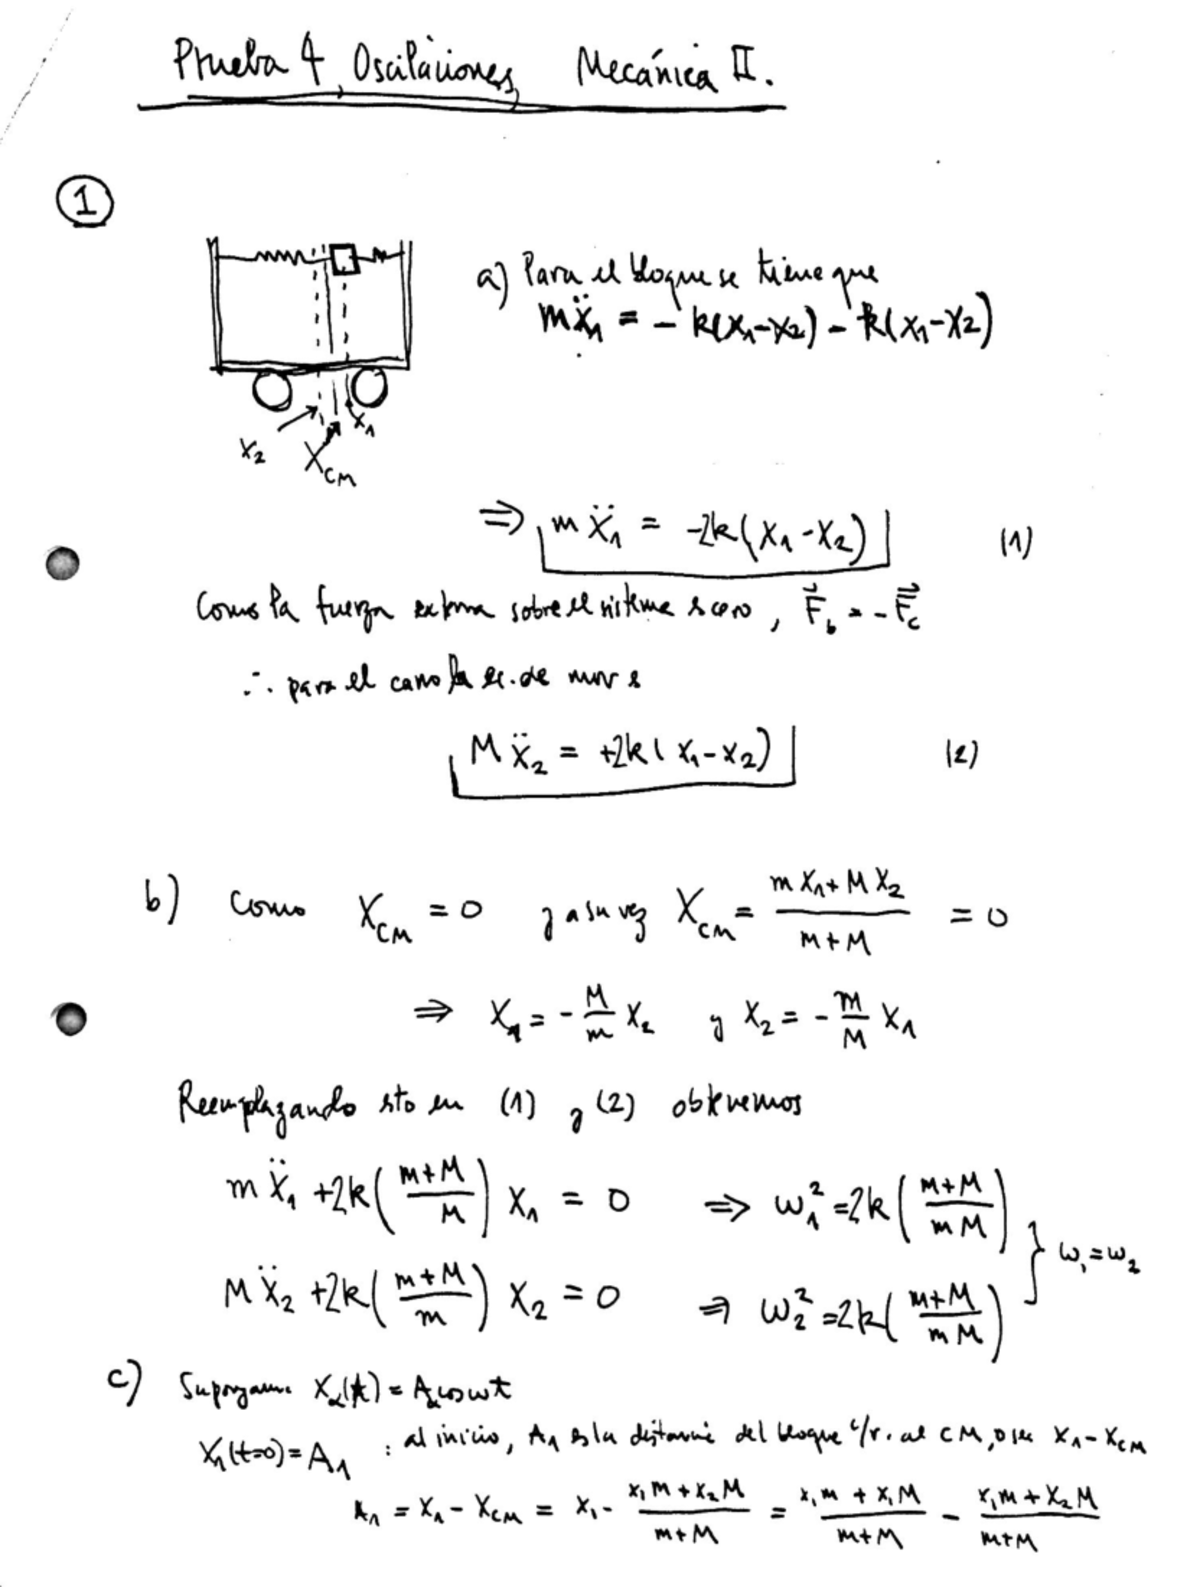 Prueba 4, Oscilaciones, Mecánica II.
1
a) Para el bloque se tiene que
mẍ₁ = - k(x₁-x₂) - k(x₁-x₂)
x₂ X_CM x₁
⇒ mẍ₁ = -2k(x₁-x₂) (1)
Como la fuerza externa sobre el sistema es cero, F⃗_b = -F⃗_c
∴ para el carro la ec. de mov es
Mẍ₂ = +2k(x₁-x₂) (2)
b) Como X_CM = 0 y a su vez X_CM = (mx₁+Mx₂)/(m+M) = 0
⇒ x₁ = -M/m x₂ y x₂ = -m/M x₁
Reemplazando esto en (1) y (2) obtenemos
mẍ₁ + 2k((m+M)/M) x₁ = 0 ⇒ ω₁² = 2k((m+M)/(mM))
Mẍ₂ + 2k((m+M)/m) x₂ = 0 ⇒ ω₂² = 2k((m+M)/(mM)) } ω₁ = ω₂
c) Supongamos x_α(t) = A_α cos ωt
x₁(t=0) = A₁ : al inicio, A₁ es la distancia del bloque c/r. al CM, o sea x₁ - x_CM
A₁ = x₁ - x_CM = x₁ - (x₁m + x₂M)/(m+M) = (x₁m + x₁M)/(m+M) - (x₁m + x₂M)/(m+M)